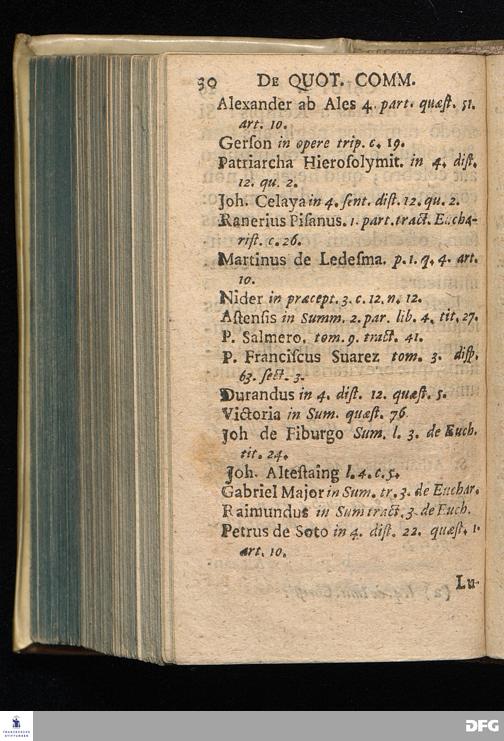 30 DE QUOT. COMM.
Alexander ab Ales 4. part. quæſt. 51.
art. 10.
Gerſon in opere trip. c. 19.
Patriarcha Hieroſolymit. in 4. diſt.
12. qu. 2.
Joh. Celaya in 4. ſent. diſt. 12. qu. 2.
Ranerius Piſanus. 1. part. tract. Eucha-
riſt. c. 26.
Martinus de Ledeſma. p. 1. q. 4. art.
10.
Nider in præcept. 3. c. 12. n. 12.
Aſtenſis in Summ. 2. par. lib. 4. tit. 27.
P. Salmero. tom. 9. tract. 41.
P. Franciſcus Suarez tom. 3. diſp.
63. ſect. 3.
Durandus in 4. diſt. 12. quæſt. 5.
Victoria in Sum. quæſt. 76
Joh de Fiburgo Sum. l. 3. de Euch.
tit. 24.
Joh. Alteſtaing l. 4. c. 5.
Gabriel Major in Sum. tr. 3. de Euchar.
Raimundus in Sum tract. 3. de Euch.
Petrus de Soto in 4. diſt. 22. quæſt. 1.
art. 10.
Lu-
FRANCKESCHE
STIFTUNGEN
DFG